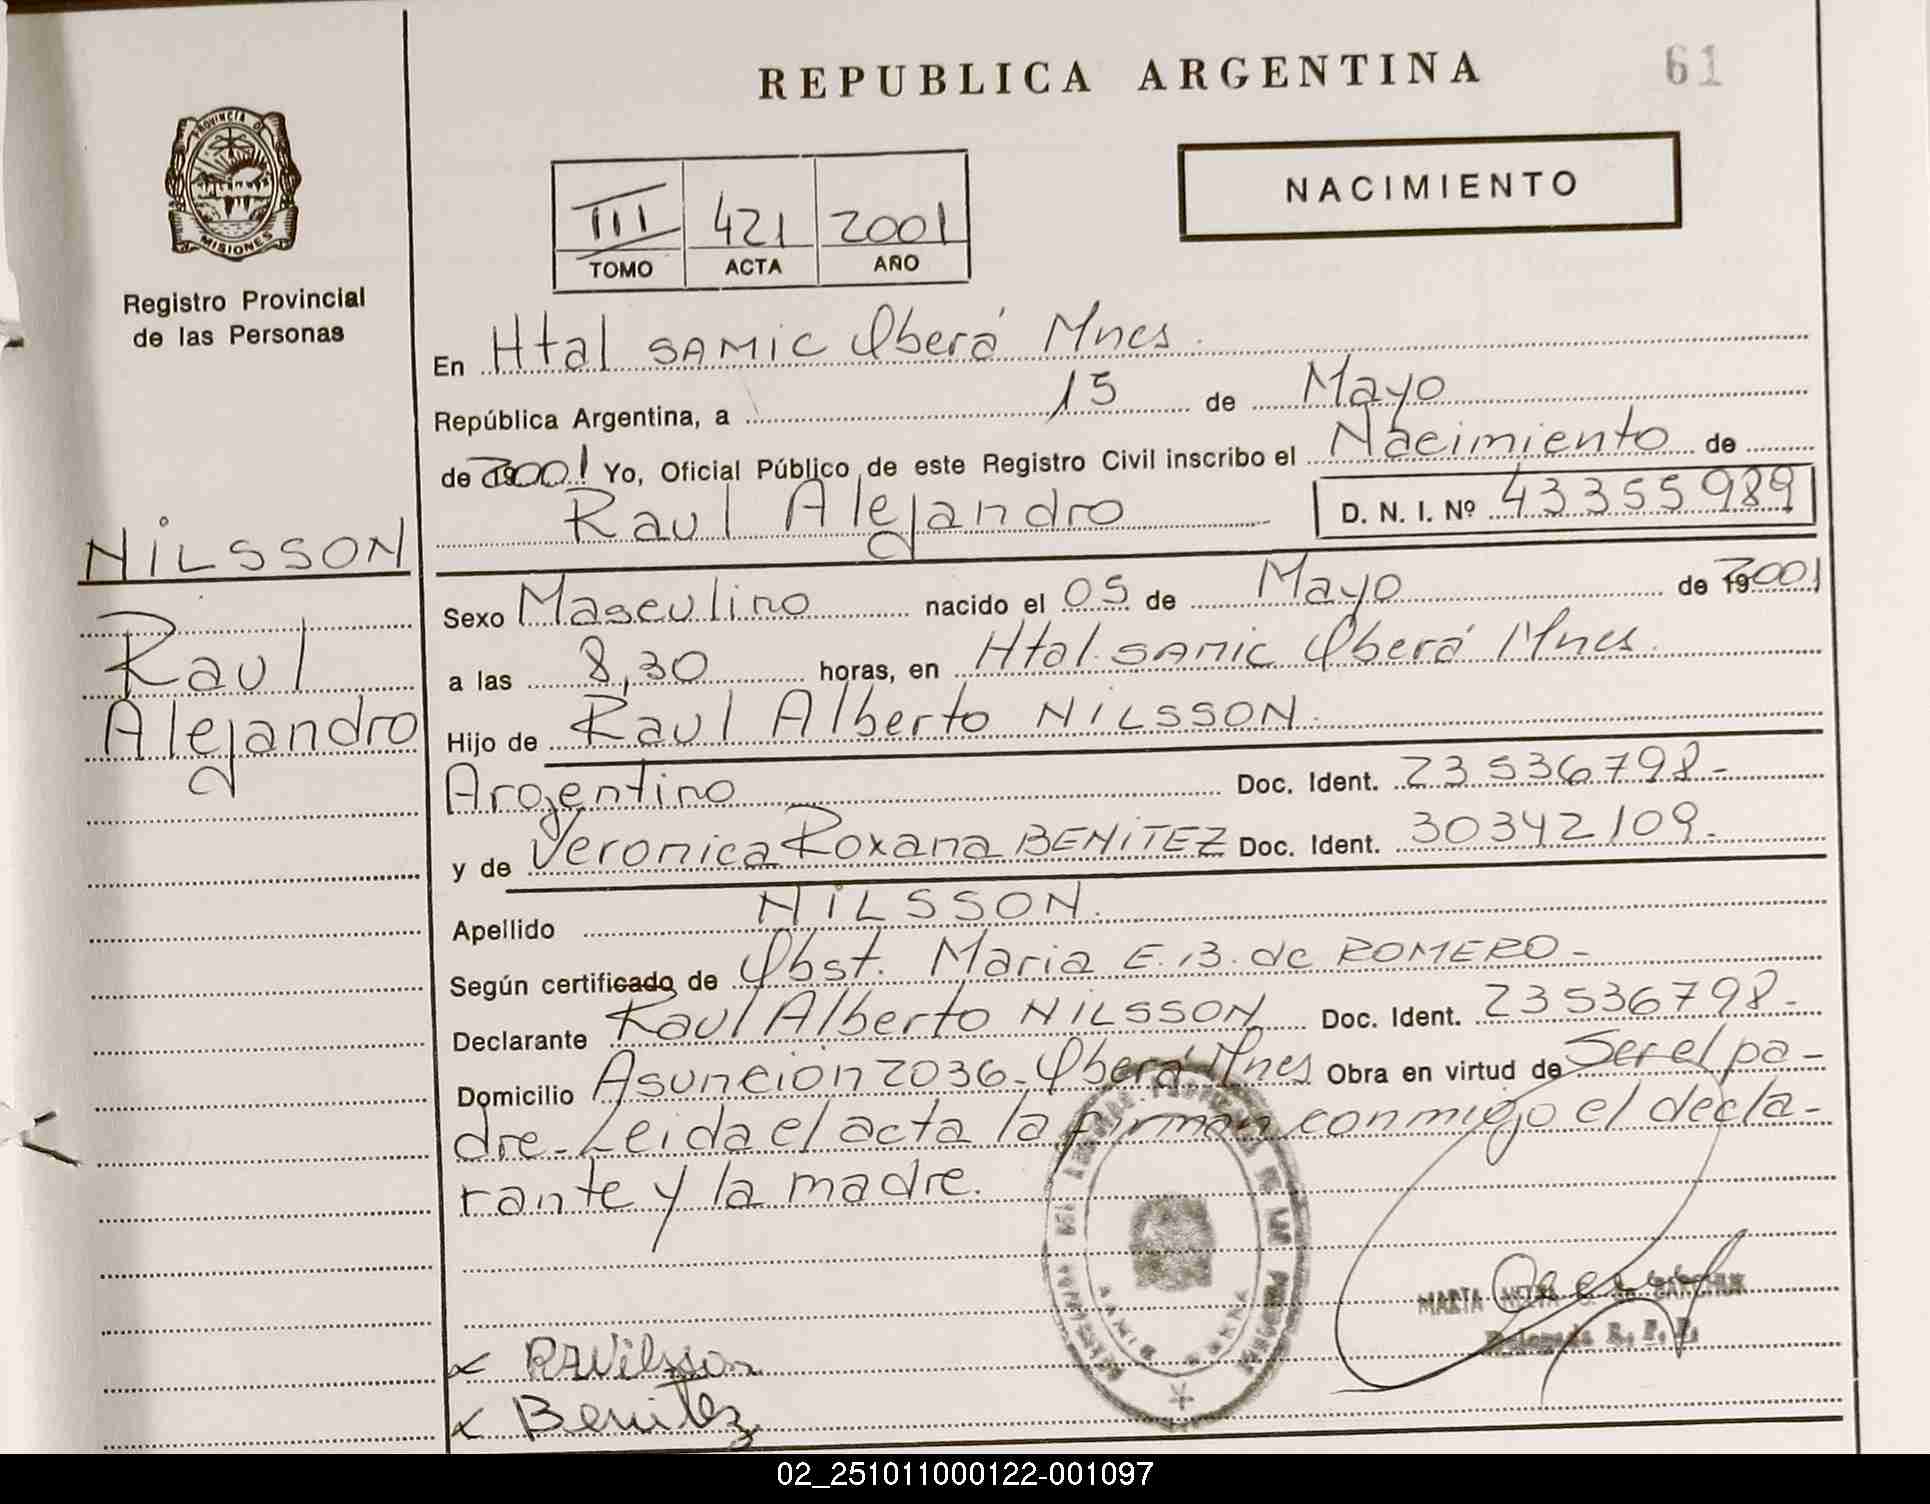 REPUBLICA ARGENTINA
61
PROVINCIA DE
MISIONES
Registro Provincial
de las Personas
NACIMIENTO
III 421 2001
TOMO ACTA AÑO
En Htal SAMIC Oberá Mnes.
República Argentina, a 15 de Mayo
de 2001 Yo, Oficial Público de este Registro Civil inscribo el Nacimiento de
Raul Alejandro D. N. I. Nº 43355989
NILSSON
Raul
Alejandro
Sexo Masculino nacido el 05 de Mayo de 2001
a las 8,30 horas, en Htal. SAMIC Oberá Mnes.
Hijo de Raul Alberto NILSSON.
Argentino Doc. Ident. 23536798-
y de Veronica Roxana BENITEZ Doc. Ident. 30342109-
Apellido NILSSON.
Según certificado de Obst. Maria E. B. de ROMERO-
Declarante Raul Alberto NILSSON Doc. Ident. 23536798-
Domicilio Asunción 2036- Oberá Mnes Obra en virtud de Ser el pa-
dre- Leida el acta la firman conmigo el decla-
rante y la madre.
MARTA
R. P. P.
x RANilsson
x Benitez
02_251011000122-001097